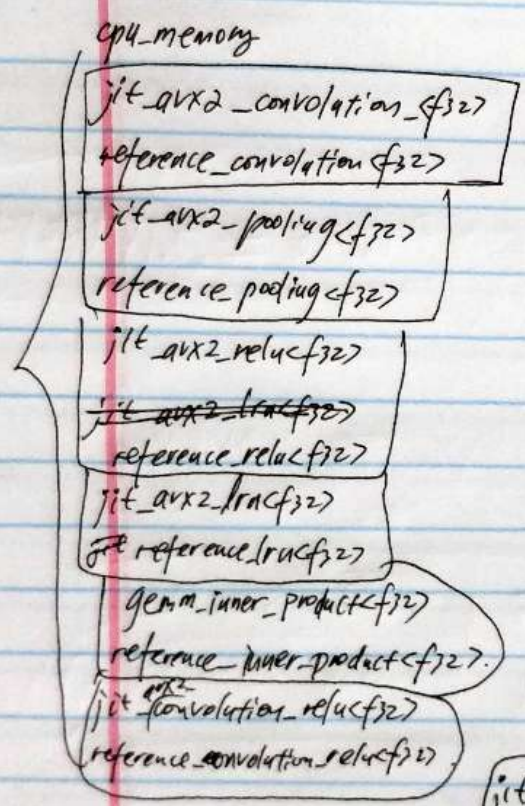 cpu_memory
jit_avx2_convolution_<f32>
reference_convolution<f32>
jit_avx2_pooling<f32>
reference_pooling<f32>
jit_avx2_relu<f32>
jit_avx2_lrn<f32>
reference_relu<f32>
jit_avx2_lrn<f32>
jit reference_lrn<f32>
gemm_inner_product<f32>
reference_inner_product<f32>.
jit_avx2_convolution_relu<f32>
reference_convolution_relu<f32>
jit